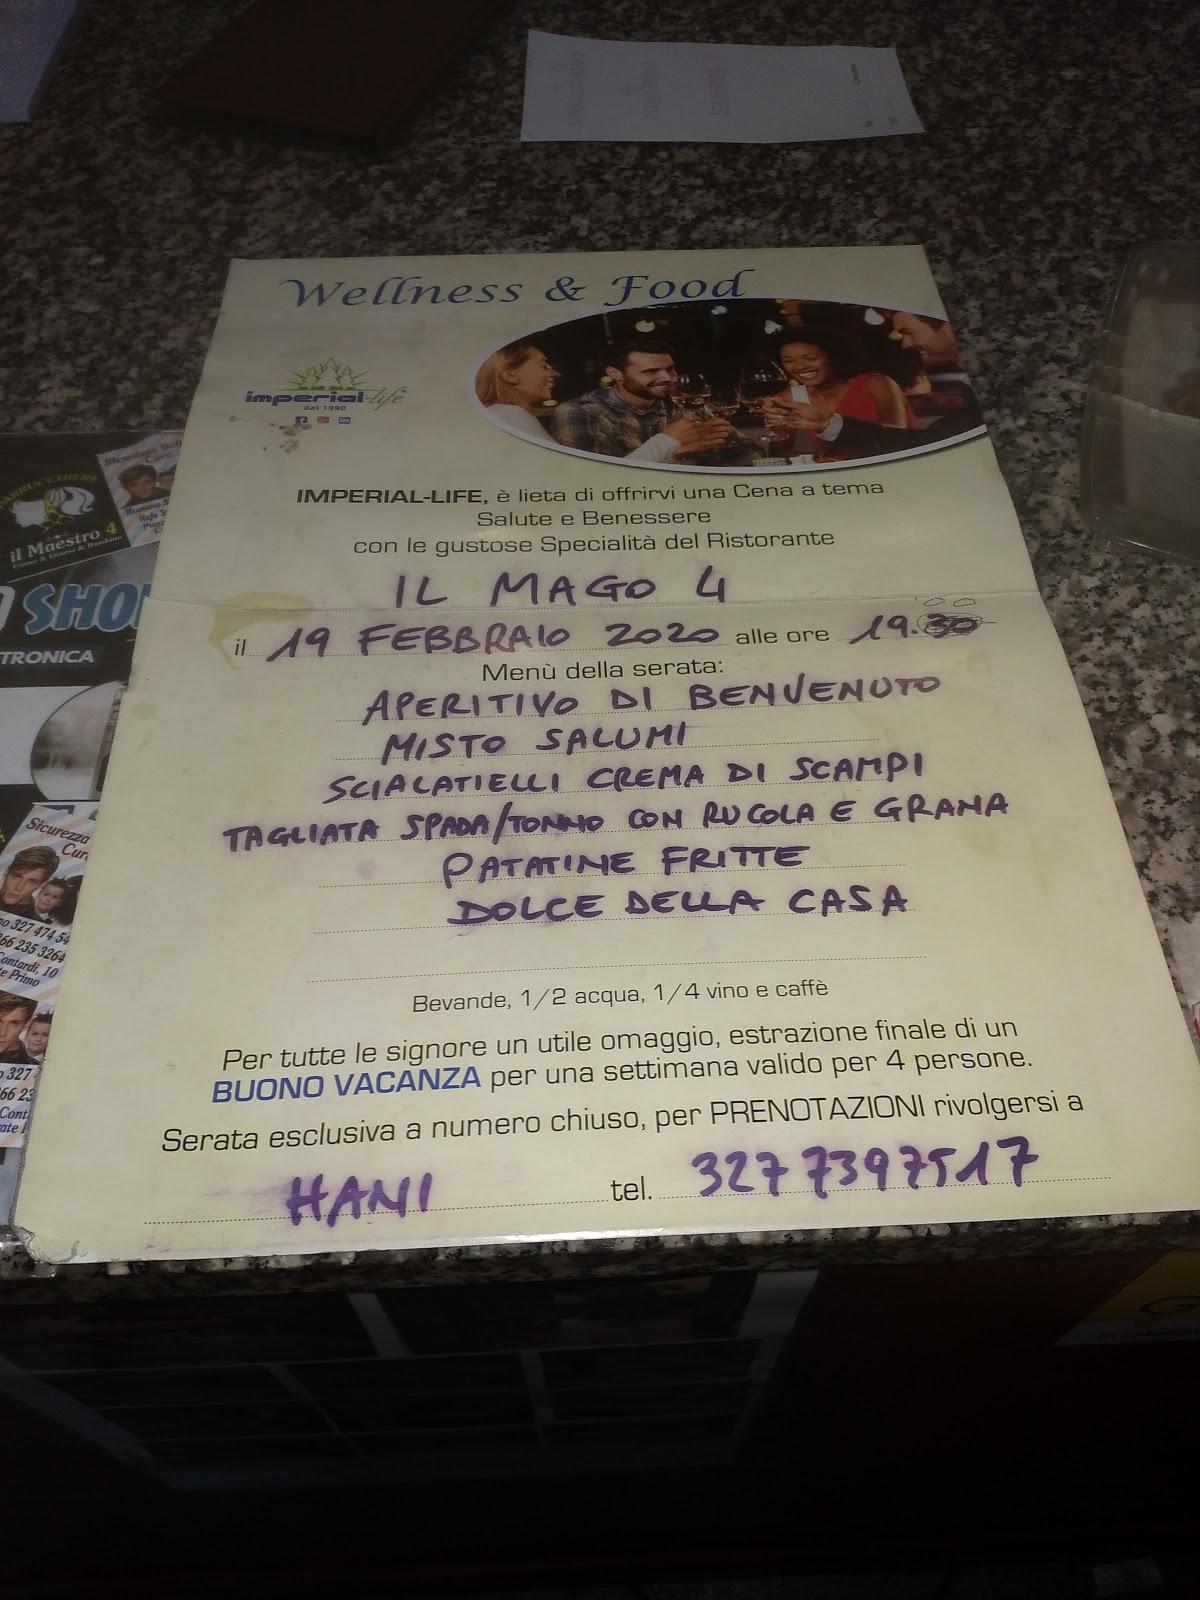 Wellness & Food
imperial-life
dal 1990
IMPERIAL-LIFE, è lieta di offrirvi una Cena a tema
Salute e Benessere
con le gustose Specialità del Ristorante
IL MAGO 4
il 19 FEBBRAIO 2020 alle ore 19.30
00
Menù della serata:
APERITIVO DI BENVENUTO
MISTO SALUMI
SCIALATIELLI CREMA DI SCAMPI
TAGLIATA SPADA/TONNO CON RUCOLA E GRANA
PATATINE FRITTE
DOLCE DELLA CASA
Bevande, 1/2 acqua, 1/4 vino e caffè
Per tutte le signore un utile omaggio, estrazione finale di un
BUONO VACANZA per una settimana valido per 4 persone.
Serata esclusiva a numero chiuso, per PRENOTAZIONI rivolgersi a
HANI tel. 327 7397517
PARRUCCHIERE
il Maestro 4
Uomo & Donna & Bambino
SHO
TRONICA
Sicurezza
Cur
327 474 54
66 235 3264
Contardi, 10
te Primo
327
66 23
Cont